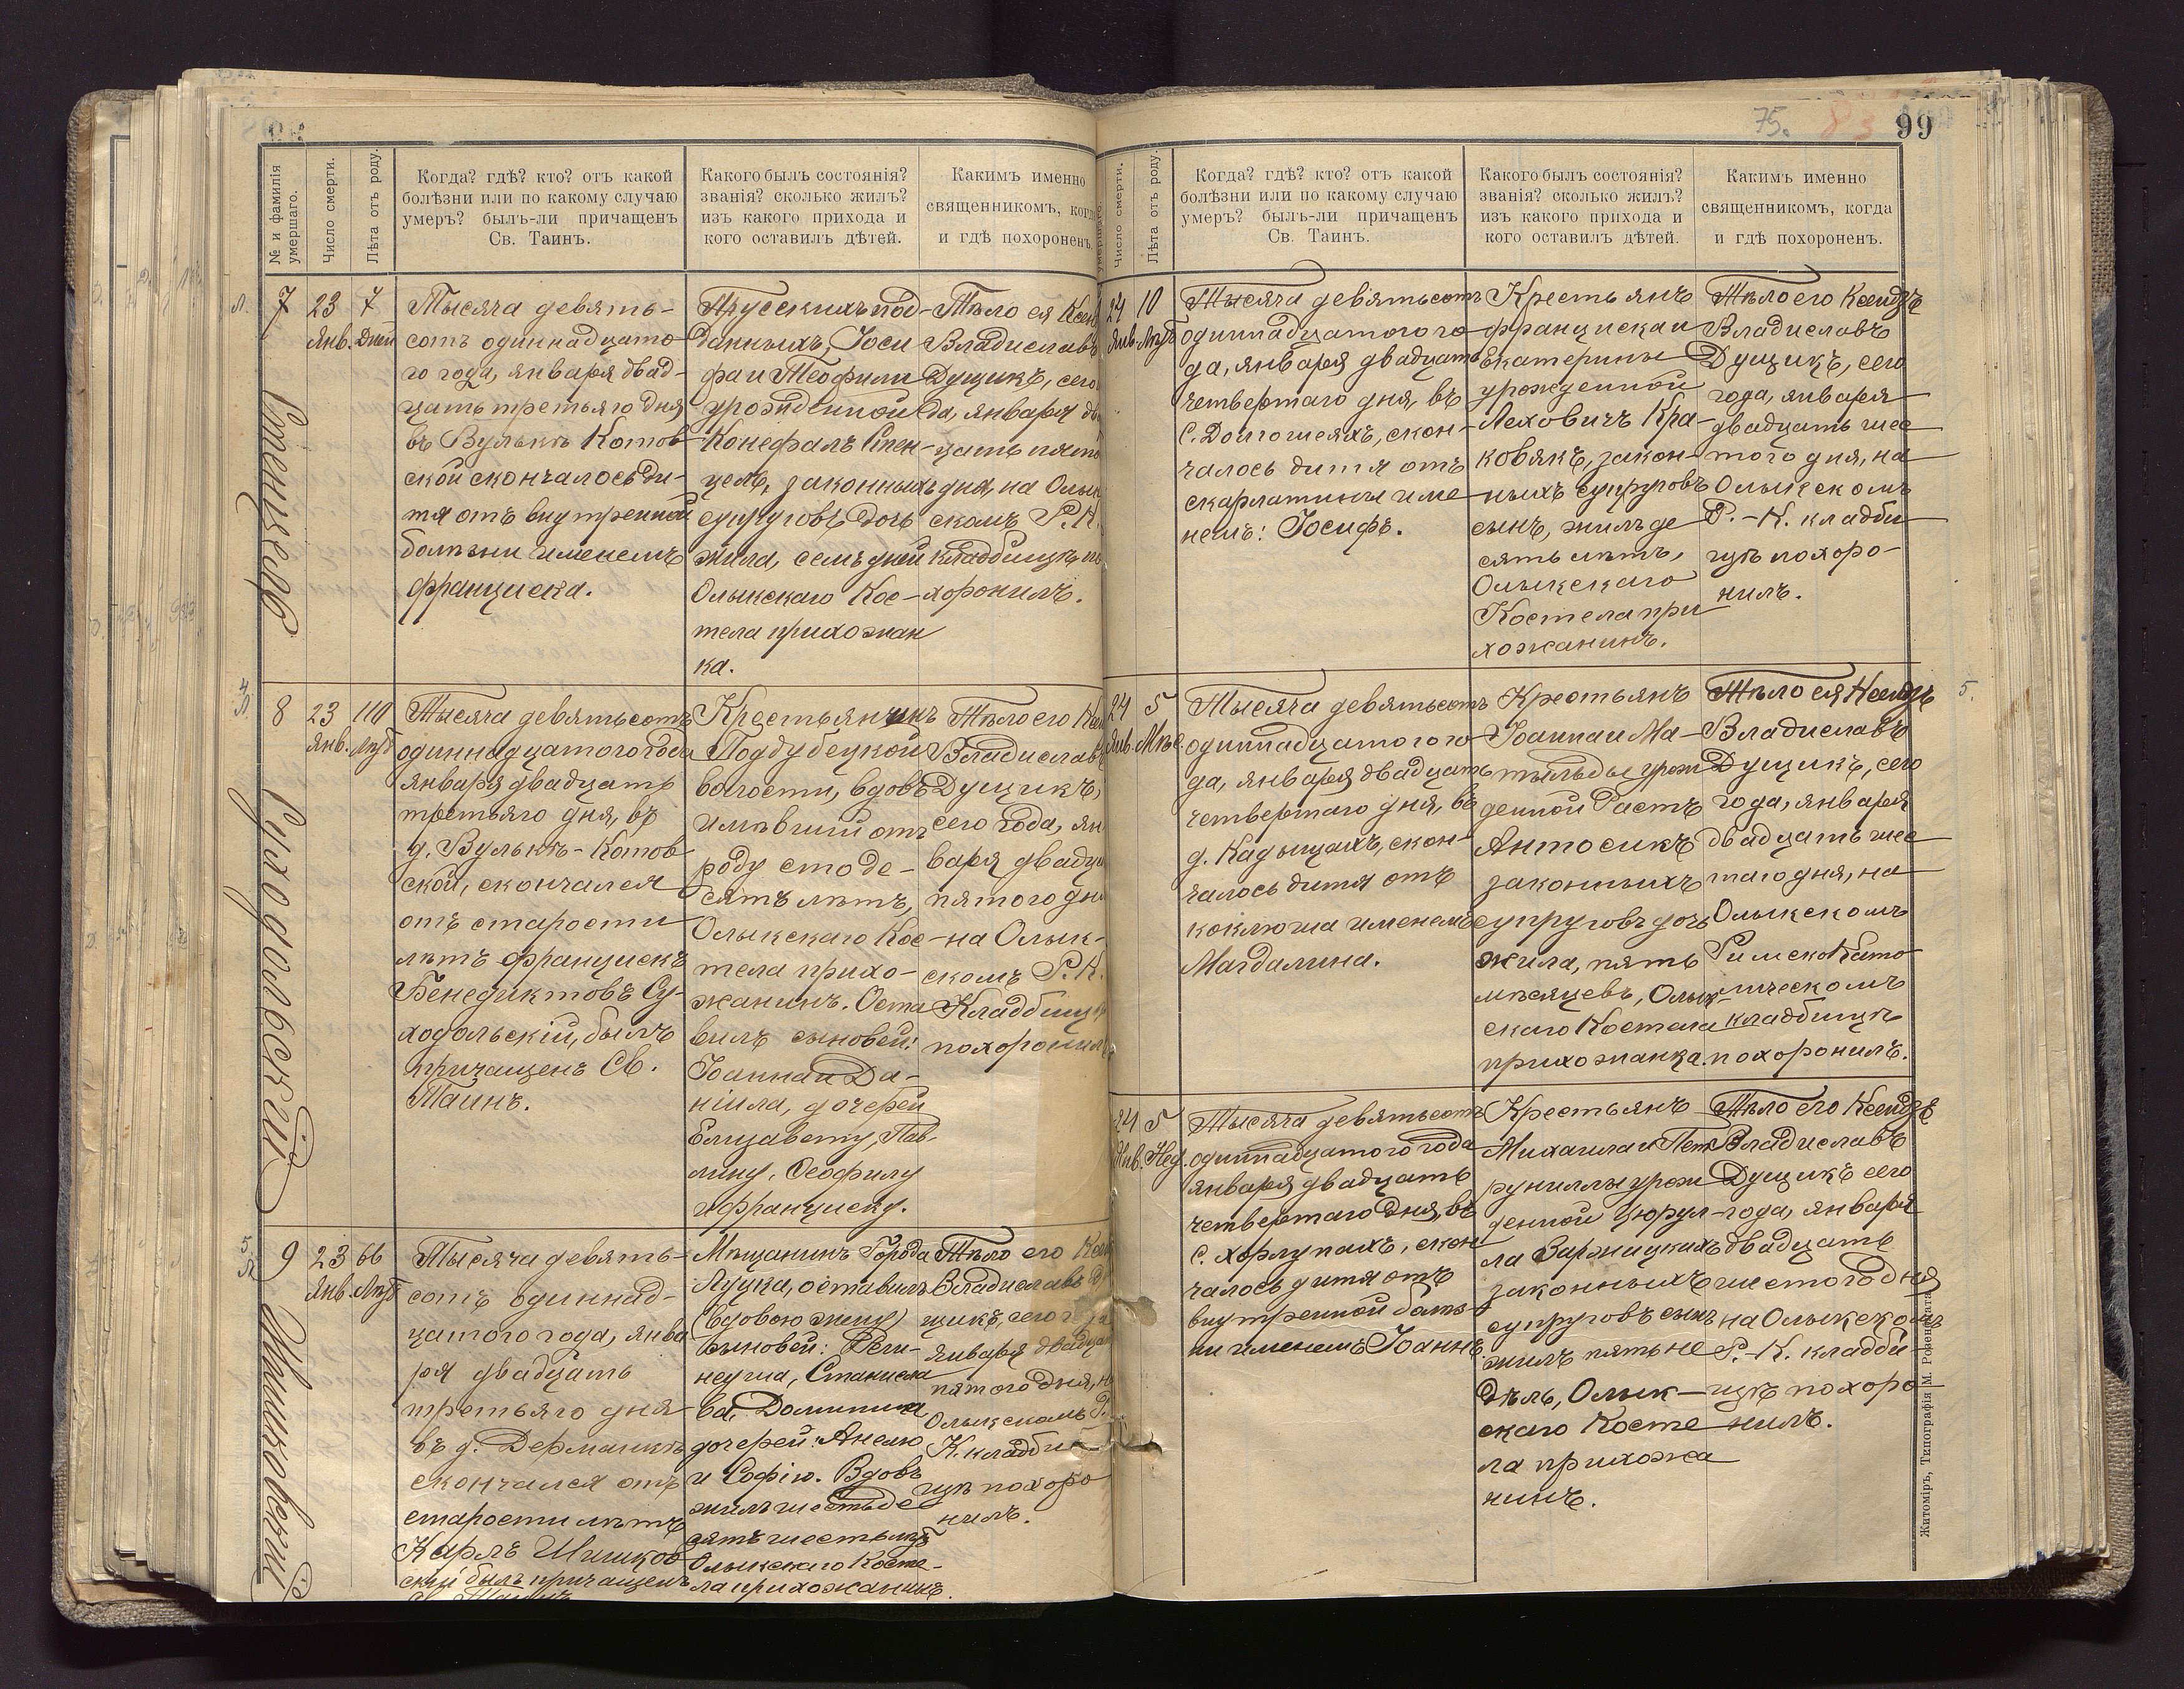 75.
83
99
№ и фамилія умершаго.
Число смерти.
Лѣта отъ роду.
Когда? гдѣ? кто? отъ какой
болѣзни или по какому случаю
умеръ? былъ-ли причащенъ
Св. Таинъ.
Какого былъ состоянія?
званія? сколько жилъ?
изъ какого прихода и
кого оставилъ дѣтей.
Какимъ именно
священникомъ, когда
и гдѣ похороненъ
7
23
Янв.
7
Дней
Тысяча девять-
сотъ одиннадцато-
го года, января двад-
цать третьяго дня
въ Вулькѣ Котов
ской скончалось ди-
тя отъ внутренной
болѣзни именемъ
Франциска.
Прусскихъ под-
данныхъ, Іоси
фа и Теофили
урожденной
Конефалъ Стен-
целъ, законныхъ
супруговъ дочь
жила, семь дней
Олыкскаго Кос-
тела прихожан
ка.
Тѣло ея Ксен
Владиславъ
Дущикъ, сего
да, января дв
цать пято
дня, на Олык
скомъ Р. К.
кладбищѣ по
хоронилъ.
8
Суходольскій
23
Янв.
110
Лѣтъ
Тысяча девятьсотъ
одиннадцатого года
января двадцать
третьяго дня, въ
д. Вулькѣ-Котов
ской, скончался
отъ старости
лѣтъ Францискъ
Бенедиктовъ Су-
ходольскій, былъ
причащенъ Св.
Таинъ.
Крестьянинъ
Поддубецкой
волости, вдовъ
имѣвшій отъ
роду сто де-
сять лѣтъ,
Олыкскаго Кос-
тела прихо-
жанинъ. Оста
вилъ сыновей:
Іоанна и Да-
ніила, дочерей
Елизавету, Пав-
лину, Ѳеофилу
и Франциску.
Тѣло его Ксен
Владиславъ
Дущикъ,
сего года, ян
варя двадца
пятого дня
на Олык-
скомъ Р. К.
Кладбищѣ
похоронилъ
9
Шишковскій
23
Янв.
66
Лѣтъ
Тысяча девять-
сотъ одиннад-
цатого года, янва
ря двадцать
третьяго дня
въ д. Дерманкѣ
скончался отъ
старости лѣтъ
Карлъ Шишков
скій былъ причащенъ
Св. Таинъ
Мѣщанинъ Города
Луцка, оставилъ
(вдовою жену)
сыновей:
Станисла
ва, Доминика
дочерей: Анелю
и Софію. Вдовъ
жилъ шестьде
сятъ шесть лѣтъ
Олыкскаго Косте-
ла прихожанинъ.
Тѣло его Ксен
Владиславъ Д
щикъ, сего г
января двадца
пятого дня, на
Олыкскомъ Р.
К. кладби
щѣ похоро
нилъ.
умершаго.
Число смерти.
Лѣта отъ роду.
Когда? гдѣ? кто? отъ какой
болѣзни или по какому случаю
умеръ? былъ-ли причащенъ
Св. Таинъ.
Какого былъ состоянія?
званія? сколько жилъ?
изъ какого прихода и
кого оставилъ дѣтей.
Какимъ именно
священникомъ, когда
и гдѣ похороненъ.
24
Янв.
10
Лѣтъ
Тысяча девятьсотъ
одиннадцатого го
да, января двадцать
четвертаго дня, въ
с. Долгошеяхъ, скон-
чалось дитя отъ
скарлатины име
немъ: Іосифъ.
Крестьянъ
Франциска и
Екатерины
урожденной
Ляховичъ Кра-
ковякъ, закон-
ныхъ супруговъ
сынъ, жилъ де
сять лѣтъ,
Олыкскаго
Костела при
хожанинъ.
Тѣло его Ксендзъ
Владиславъ
Дущикъ, сего
года, января
двадцать шес
того дня, на
Олыкскомъ
Р.-К. кладби
щѣ похоро-
нилъ.
24
Янв.
5
Мѣс.
Тысяча девятьсотъ
одиннадцатого го-
да, января двадцать
четвертаго дня, въ
д. Кадыщахъ, скон-
чалось дитя отъ
коклюша именемъ
Магдалина.
Крестьянъ
Іоанна и Ма-
тыльды урож
денной Гастъ
Антосикъ
законныхъ
супруговъ дочь
жила, пять
мѣсяцевъ, Олык-
скаго Костела
прихожанка.
Тѣло ея Ксендзъ
Владиславъ
Дущикъ, сего
года, января
двадцать шес
таго дня, на
Олыкскомъ
Римско Като
лическомъ
кладбищѣ
похоронилъ.
5.
24
Янв.
5
Нед.
Тысяча девятьсотъ
одиннадцатого года
января двадцать
четвертаго дня, въ
с. Хорлупахъ, скон
чалось дитя отъ
внутренной болѣз-
ни именемъ Іоаннъ
Крестьянъ
Михаила и Пет
руниллы урож
денной Цюрул-
ла Заржицкихъ
законныхъ
супруговъ сынъ
жилъ пять не
дѣль, Олык-
скаго Косте
ла прихожа
нинъ.
Тѣло его Ксендзъ
Владиславъ
Дущикъ сего
года, января
двадцать
шестого дня
на Олыкскомъ
Р.-К. кладби-
щѣ похоро
нилъ.
Житоміръ, Типографія М. Розенблата